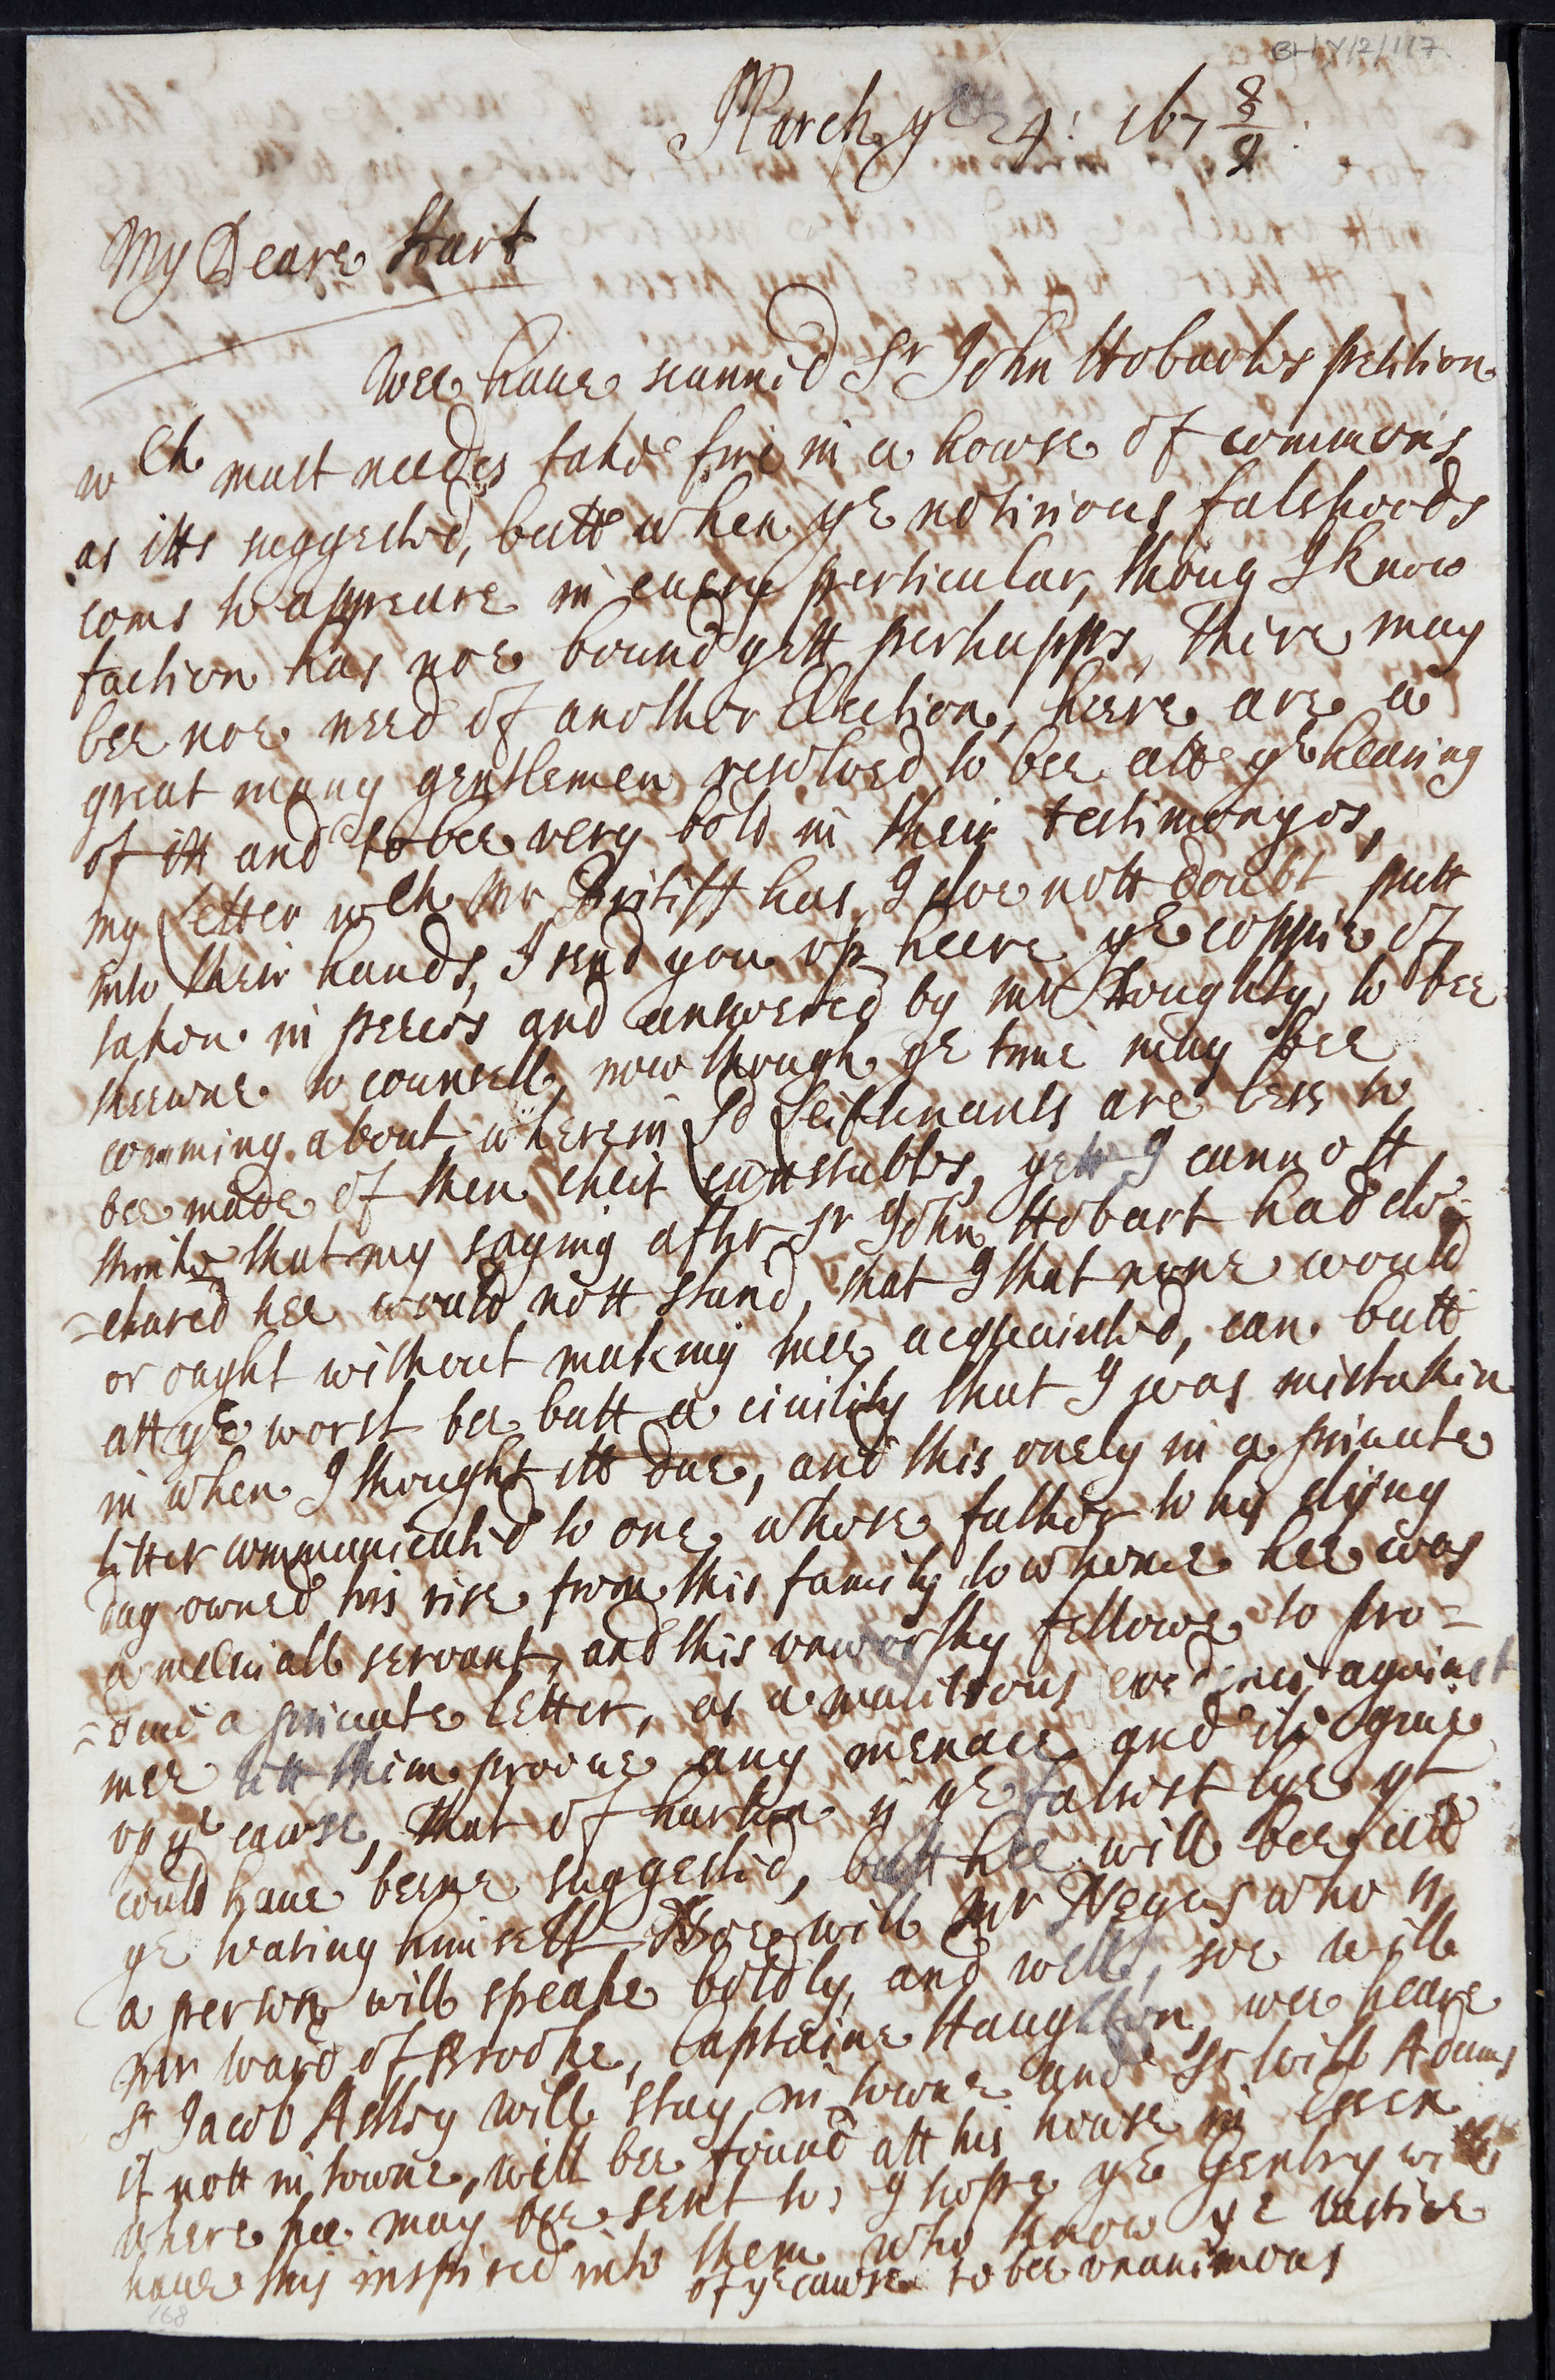 BL/Y/2/117
March ye 24: 167 8/9
My Deare Hart
Wee haue scannid Sr John Hobarts petition
wch must needes take fire in a howse of commons
as itts suggested, butt when ye notirious falshoods
coms to appeare in euery perticular, thoug I know
faction has noe bound yett perhapps, there may
bee noe need of another Election, heere are a
great many gentlemen resolued to bee att ye hearing
of itt and to bee very bold in their testimonyes,
my Letter wch Mr Britiff has, I doe nott doubt putt
into their hands, I send you vp heere ye coppie of
taken in peeces and answered by mr Doughty, to bee
shewne to counsell, now though ye time may bee
comming about wherein Ld Leiftenants are less to
bee made of then cheif cunstables, yett I cannott
thinke that my saying after Sr John Hobart had de=
=clared hee would nott stand, that I that none would
or ought without making mee acquainted, can butt
att ye worst bee butt a ciuility that I was mistaken
in when I thought itt due, and this onely in a priuate
letter communicated to one whose father to his dying
day owned his rise from this family to whome hee was
a meniall servant, and this vnworthy fellowe to pro=
=duce a priuate Letter, as a malitious evedence against
mee lett him prooue any menace and ile giue
vp ye cawse, that of harbin is ye falsest lye yt
could haue beene suggestid, butt hee will bee att
ye hearing himselfe Soe will Mr Negus who is
a person will speake boldly, and well, soe will
mr ward of Brooke, Captaine Haughton, wee heare
Sr Jacob Astley will stay in towne and Sr Will Adams
if nott in towne, will bee found att his house in Essex
where hee may bee sent to, I hope ye Gentry will
haue this inspired into them who know ye iustice
of ye cause to bee vnanimous
168